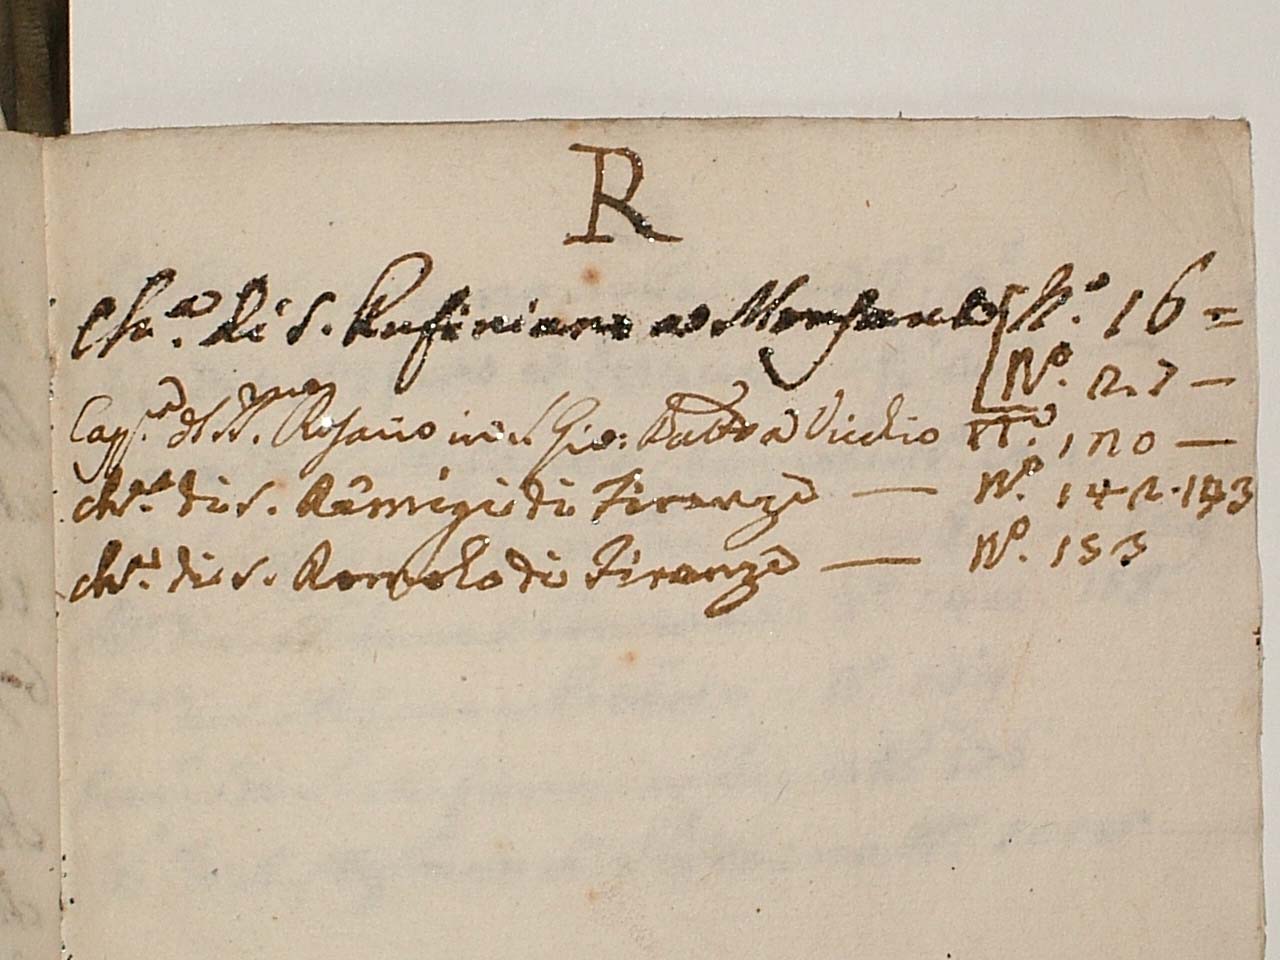 R
Ch.a di S. Rufiniano a Monsanto N.o 16 =
N.o 27 —
Capp.a del SS.mo Rosario in S. Gio: Batta a Vicchio N.o 120 —
Ch.a di S. Remigi di Firenze — N.o 142.143
Ch.a di S. Romolo di Firenze — N.o 153